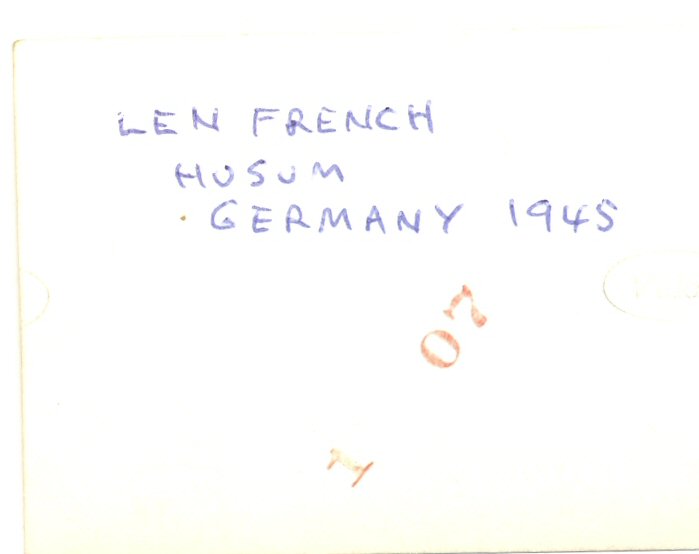 LEN FRENCH
HUSUM
GERMANY 1945
07